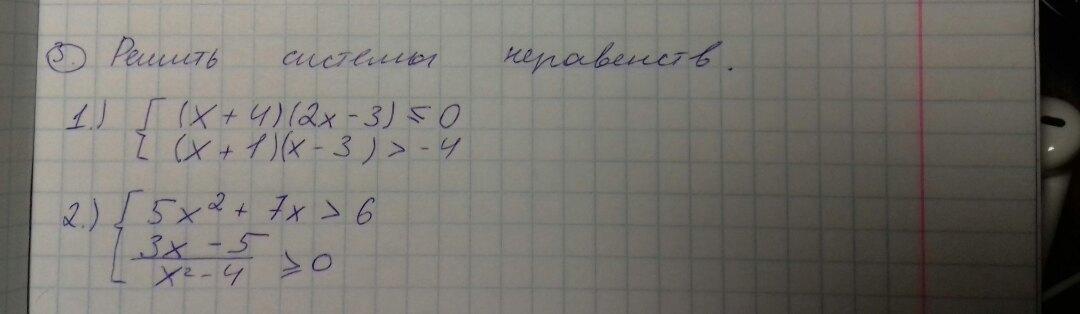 3. Решить системы неравенств.
1.) { (x + 4)(2x - 3) ≤ 0
(x + 1)(x - 3) > -4
2.) { 5x² + 7x > 6
3x - 5
x² - 4 ≥ 0